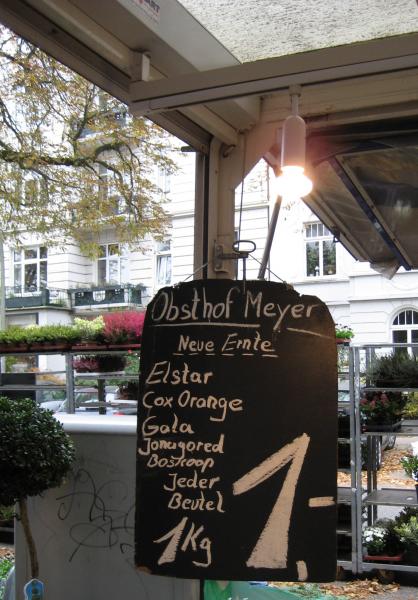 Obsthof Meyer
Neue Ernte
Elstar
Cox Orange
Gala
Jonagored
Boskoop
Jeder
Beutel
1Kg
1,-